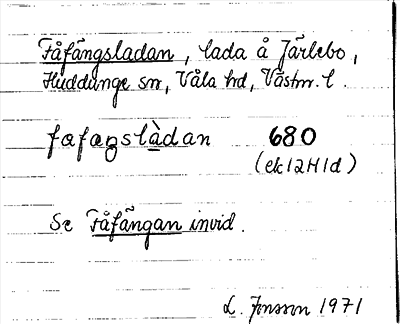 Fåfängsladan, lada å Järlebo,
Huddunge sn, Våla hd, Västm. l.
fafaŋslàdan 680
(ek 12H1d)
Se Fåfängan invid.
L. Jonsson 1971